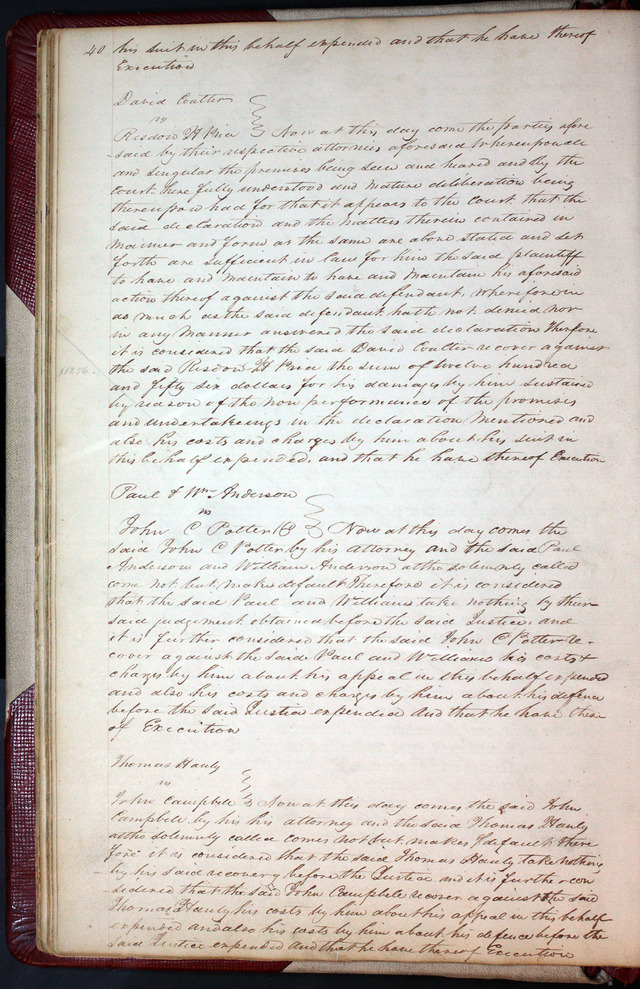 40 his suit in this behalf expended and that he have thereof
Execution
David Coalter
vs
Risdon H Price Now at this day come the parties afore
said by their respective attornies aforesaid Whereupon all
and singular the premises being seen and heard and by the
court here fully understood and mature deliberation being
thereupon had for that it appears to the court that the
said declaration and the matters therein contained in
manner and form as the same are above stated and set
forth are sufficient in law for him the said plaintiff
to have and maintain to have and maintain his aforesaid
action thereof against the said defendant, wherefore in
as much as the said defendant hath not denied nor
in any manner answered the said declaration Therefore
it is considered that the said David Coalter recover against
the said Risdon H Price the sum of twelve hundred
and fifty six dollars for his damages by him sustained
by reason of the non performance of the promises
and undertakeings in the declaration mentioned and
also his costs and charges by him about his suit in
this behalf expended, and that he have thereof Execution
Paul & Wm Anderson
vs
John C Potter Now at this day comes the
said John C Potter by his attorney and the said Paul
Anderson and William Anderson altho solemnly called
come not but make default Therefore it is considered
that the said Paul and William take nothing by their
said judgement obtained before the said Justice, and
it is further considered that the said John C Potter re-
cover against the said Paul and William his costs &
charges by him about his appeal in this behalf expended
and also his costs and charges by him about his defence
before the said Justice expended and that he have there
of Execution
Thomas Hanly
vs
John Campbell Now at this day comes the said John
Campbell by his his attorney and the said Thomas Hanly
altho solemnly called comes not but makes default, there
fore it is considered that the said Thomas Hanly take nothing
by his said recovery before the Justice and it is further con
sidered that the said John Campbell recover against the said
Thomas Hanly his costs by him about his appeal in this behalf
expended and also his costs by him about his defence before the
said Justice expended and that he have thereof Execution